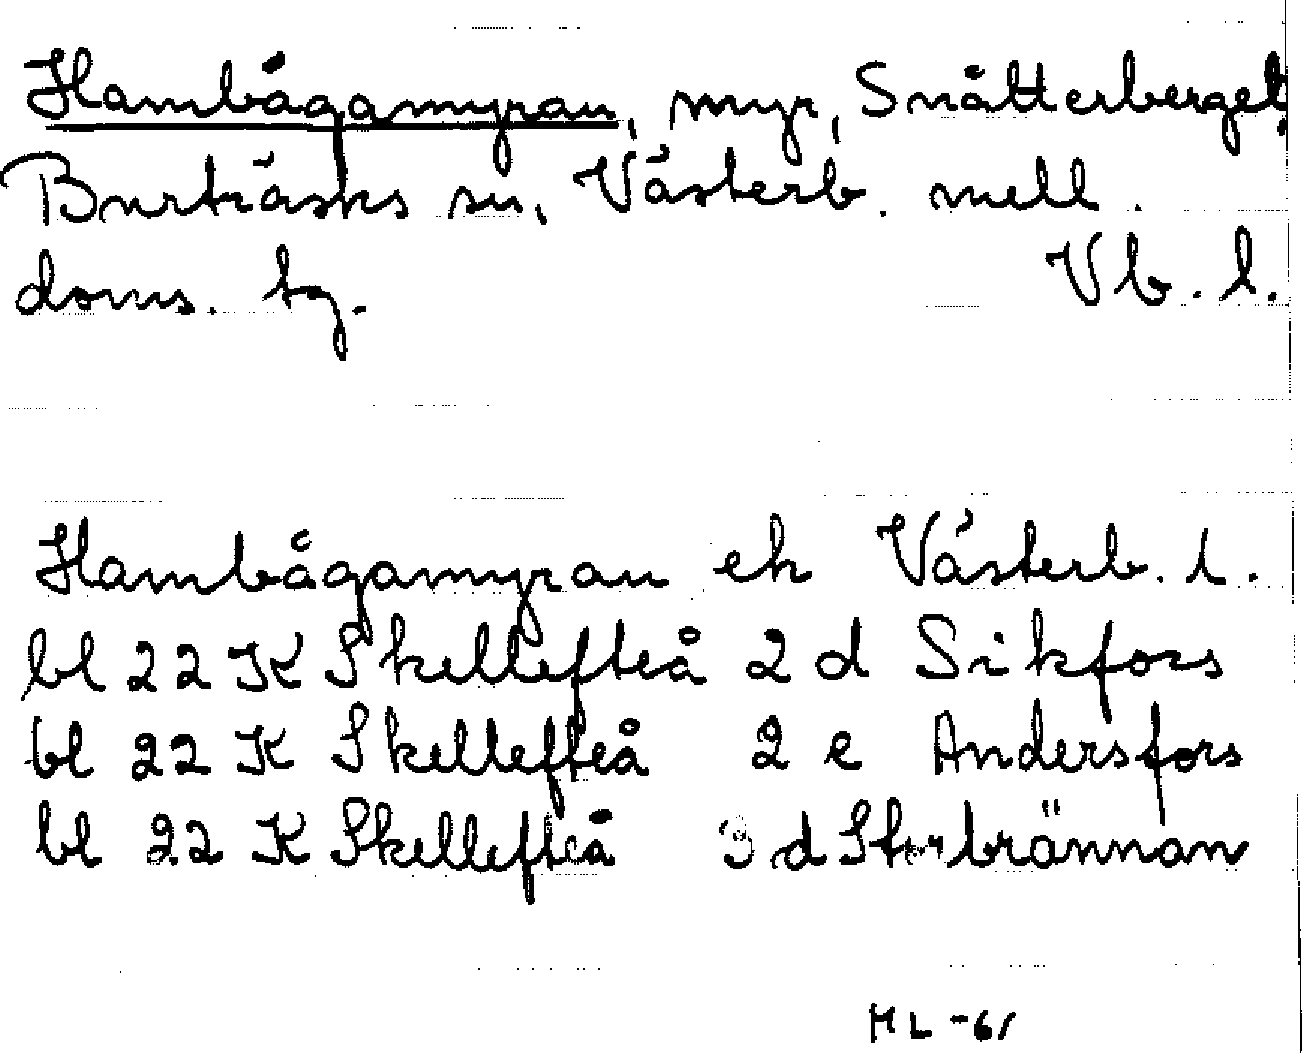 Hambågamyran, myr, Snåtterberget,
Burträsks sn, Västerb. mell.
doms. tg. Vb. l.
Hambågamyran ek Västerb. l.
bl 22 K Skellefteå 2 d Sikfors
bl 22 K Skellefteå 2 e Andersfors
bl 22 K Skellefteå 3 d Storbrännan
HL -61